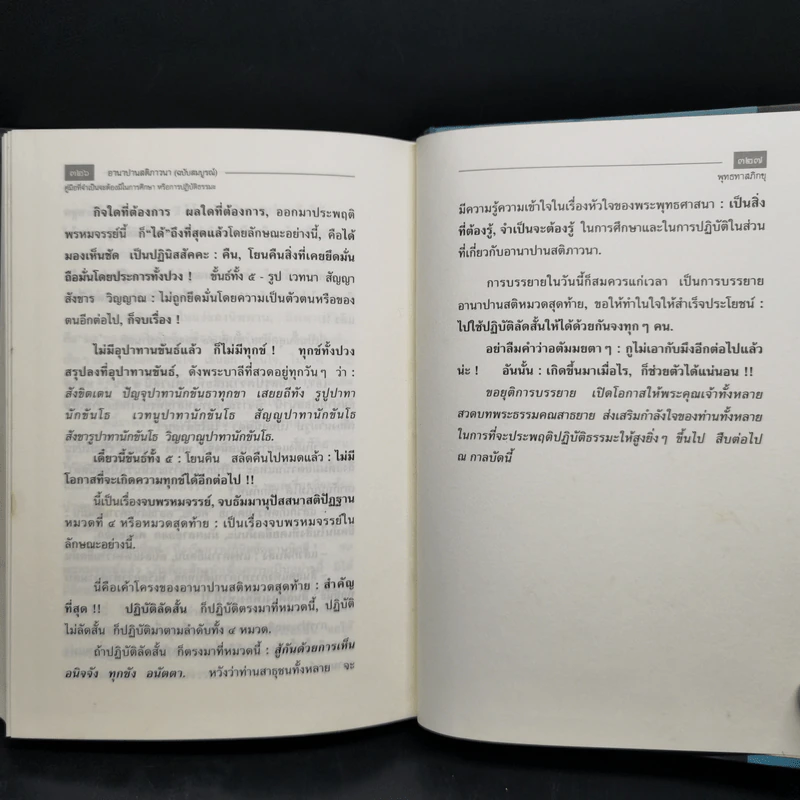 ๓๒๖ อานาปานสติภาวนา (ฉบับสมบูรณ์)
คู่มือที่จำเป็นจะต้องมีในการศึกษา หรือการปฏิบัติธรรมะ
กิจใดที่ต้องการ ผลใดที่ต้องการ, ออกมาประพฤติ
พรหมจรรย์นี้ ก็"ได้"ถึงที่สุดแล้วโดยลักษณะอย่างนี้, คือได้
มองเห็นชัด เป็นปฏินิสสัคคะ : คืน, โยนคืนสิ่งที่เคยยึดมั่น
ถือมั่นโดยประการทั้งปวง ! ขันธ์ทั้ง ๕ - รูป เวทนา สัญญา
สังขาร วิญญาณ : ไม่ถูกยึดมั่นโดยความเป็นตัวตนหรือของ
ตนอีกต่อไป, ก็จบเรื่อง !
ไม่มีอุปาทานขันธ์แล้ว ก็ไม่มีทุกข์ ! ทุกข์ทั้งปวง
สรุปลงที่อุปาทานขันธ์, ดังพระบาลีที่สวดอยู่ทุกวันๆ ว่า :
สังขิตเตน ปัญจุปาทานักขันธาทุกขา เสยยถีทัง รูปูปาทา
นักขันโธ เวทนูปาทานักขันโธ สัญญูปาทานักขันโธ
สังขารูปาทานักขันโธ วิญญาณูปาทานักขันโธ.
เดี๋ยวนี้ขันธ์ทั้ง ๕ : โยนคืน สลัดคืนไปหมดแล้ว : ไม่มี
โอกาสที่จะเกิดความทุกข์ได้อีกต่อไป !!
นี้เป็นเรื่องจบพรหมจรรย์, จบธัมมานุปัสสนาสติปัฏฐาน
หมวดที่ ๔ หรือหมวดสุดท้าย : เป็นเรื่องจบพรหมจรรย์ใน
ลักษณะอย่างนี้.
นี่คือเค้าโครงของอานาปานสติหมวดสุดท้าย : สำคัญ
ที่สุด !! ปฏิบัติลัดสั้น ก็ปฏิบัติตรงมาที่หมวดนี้, ปฏิบัติ
ไม่ลัดสั้น ก็ปฏิบัติมาตามลำดับทั้ง ๔ หมวด.
ถ้าปฏิบัติลัดสั้น ก็ตรงมาที่หมวดนี้ : สู้กันด้วยการเห็น
อนิจจัง ทุกขัง อนัตตา. หวังว่าท่านสาธุชนทั้งหลาย จะ
๓๒๗
พุทธทาสภิกขุ
มีความรู้ความเข้าใจในเรื่องหัวใจของพระพุทธศาสนา : เป็นสิ่ง
ที่ต้องรู้, จำเป็นจะต้องรู้ ในการศึกษาและในการปฏิบัติในส่วน
ที่เกี่ยวกับอานาปานสติภาวนา.
การบรรยายในวันนี้ก็สมควรแก่เวลา เป็นการบรรยาย
อานาปานสติหมวดสุดท้าย, ขอให้ทำในใจให้สำเร็จประโยชน์ :
ไปใช้ปฏิบัติลัดสั้นให้ได้ด้วยกันจงทุกๆ คน.
อย่าลืมคำว่าอตัมมยตาๆ : กูไม่เอากับมึงอีกต่อไปแล้ว
น่ะ ! อันนั้น : เกิดขึ้นมาเมื่อไร, ก็ช่วยตัวได้แน่นอน !!
ขอยุติการบรรยาย เปิดโอกาสให้พระคุณเจ้าทั้งหลาย
สวดบทพระธรรมคณสาธยาย ส่งเสริมกำลังใจของท่านทั้งหลาย
ในการที่จะประพฤติปฏิบัติธรรมะให้สูงยิ่งๆ ขึ้นไป สืบต่อไป
ณ กาลบัดนี้